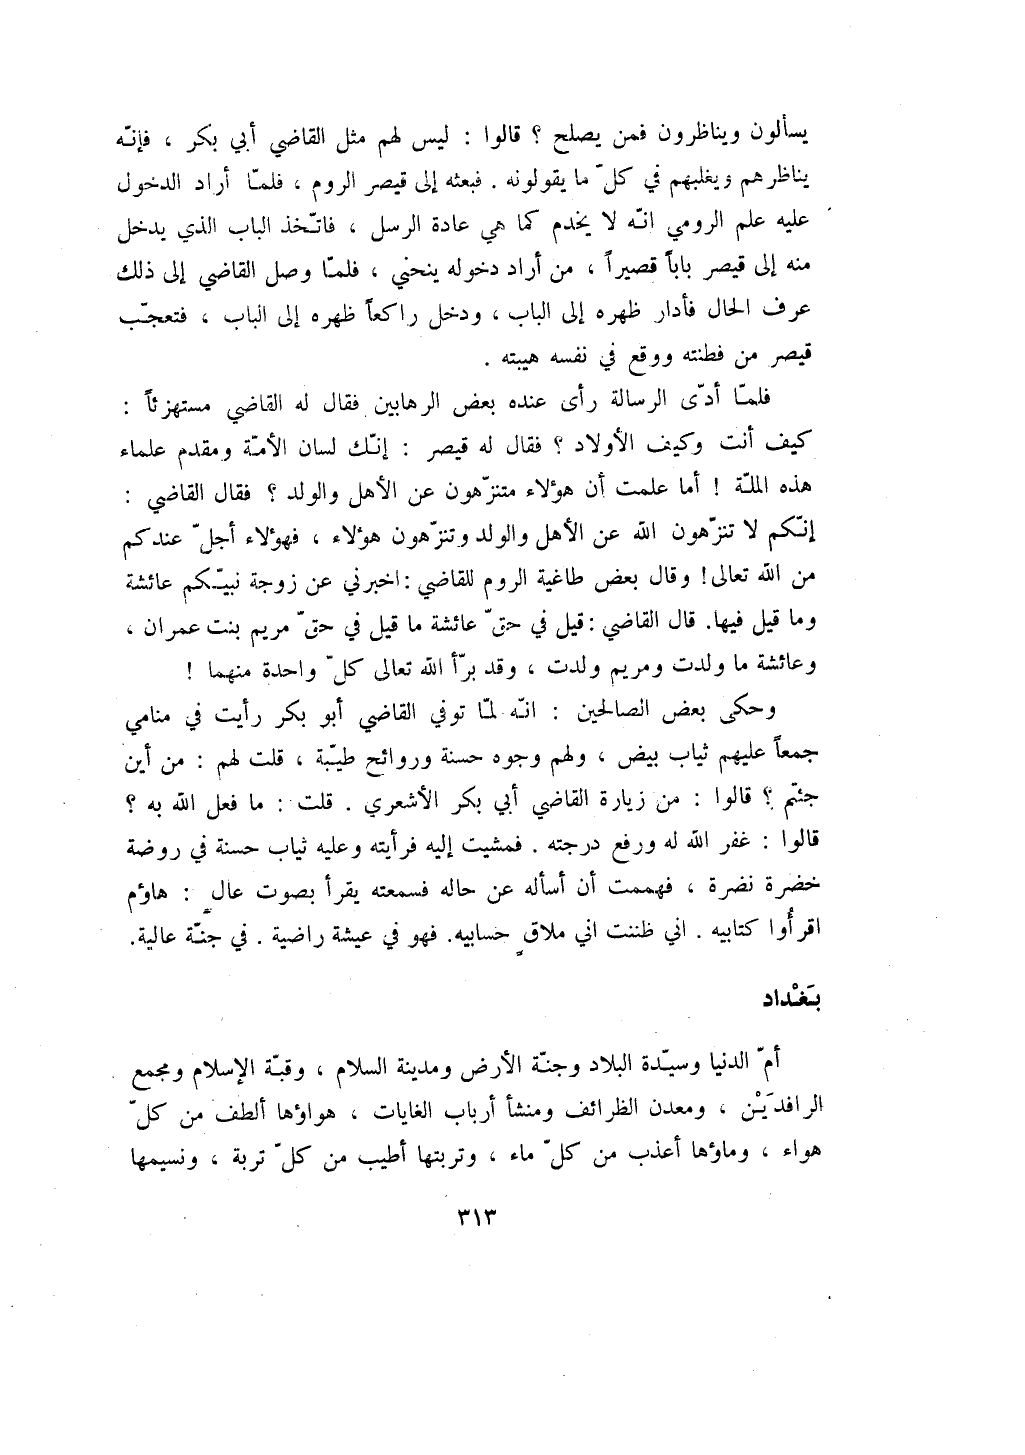 يسألون ويناظرون فمن يصلح ؟ قالوا : ليس لهم مثل القاضي أبي بكر ، فإنّه
يناظرهم ويغلبهم في كلّ ما يقولونه . فبعثه إلى قيصر الروم ، فلمّا أراد الدخول
عليه علم الرومي انّه لا يخدم كما هي عادة الرسل ، فاتّخذ الباب الذي يدخل
منه إلى قيصر باباً قصيراً ، من أراد دخوله ينحني ، فلمّا وصل القاضي إلى ذلك
عرف الحال فأدار ظهره إلى الباب ، ودخل راكعاً ظهره إلى الباب ، فتعجّب
قيصر من فطنته ووقع في نفسه هيبته .
فلمّا أدّى الرسالة رأى عنده بعض الرهابين فقال له القاضي مستهزئاً :
كيف أنت وكيف الأولاد ؟ فقال له قيصر : إنّك لسان الأمّة ومقدم علماء
هذه الملّة ! أما علمت أن هؤلاء متنزّهون عن الأهل والولد ؟ فقال القاضي :
إنّكم لا تنزّهون الله عن الأهل والولد وتنزّهون هؤلاء ، فهؤلاء أجلّ عندكم
من الله تعالى! وقال بعض طاغية الروم للقاضي : اخبرني عن زوجة نبيّكم عائشة
وما قيل فيها. قال القاضي : قيل في حقّ عائشة ما قيل في حقّ مريم بنت عمران ،
وعائشة ما ولدت ومريم ولدت ، وقد برّأ الله تعالى كلّ واحدة منهما !
وحكى بعض الصالحين : انّه لمّا توفي القاضي أبو بكر رأيت في منامي
جمعاً عليهم ثياب بيض ، ولهم وجوه حسنة وروائح طيّبة ، قلت لهم : من أين
جئتم ؟ قالوا : من زيارة القاضي أبي بكر الأشعري . قلت : ما فعل الله به ؟
قالوا : غفر الله له ورفع درجته . فمشيت إليه فرأيته وعليه ثياب حسنة في روضة
خضرة نضرة ، فهممت أن أسأله عن حاله فسمعته يقرأ بصوت عالٍ : هاؤم
اقرأُوا كتابيه . اني ظننت اني ملاقٍ حسابيه. فهو في عيشة راضية . في جنّة عالية.
بَغْداد
أمّ الدنيا وسيّدة البلاد وجنّة الأرض ومدينة السلام ، وقبّة الإسلام ومجمع
الرافدَيْن ، ومعدن الظرائف ومنشأ أرباب الغايات ، هواؤها ألطف من كلّ
هواء ، وماؤها أعذب من كلّ ماء ، وتربتها أطيب من كلّ تربة ، ونسيمها
٣١٣